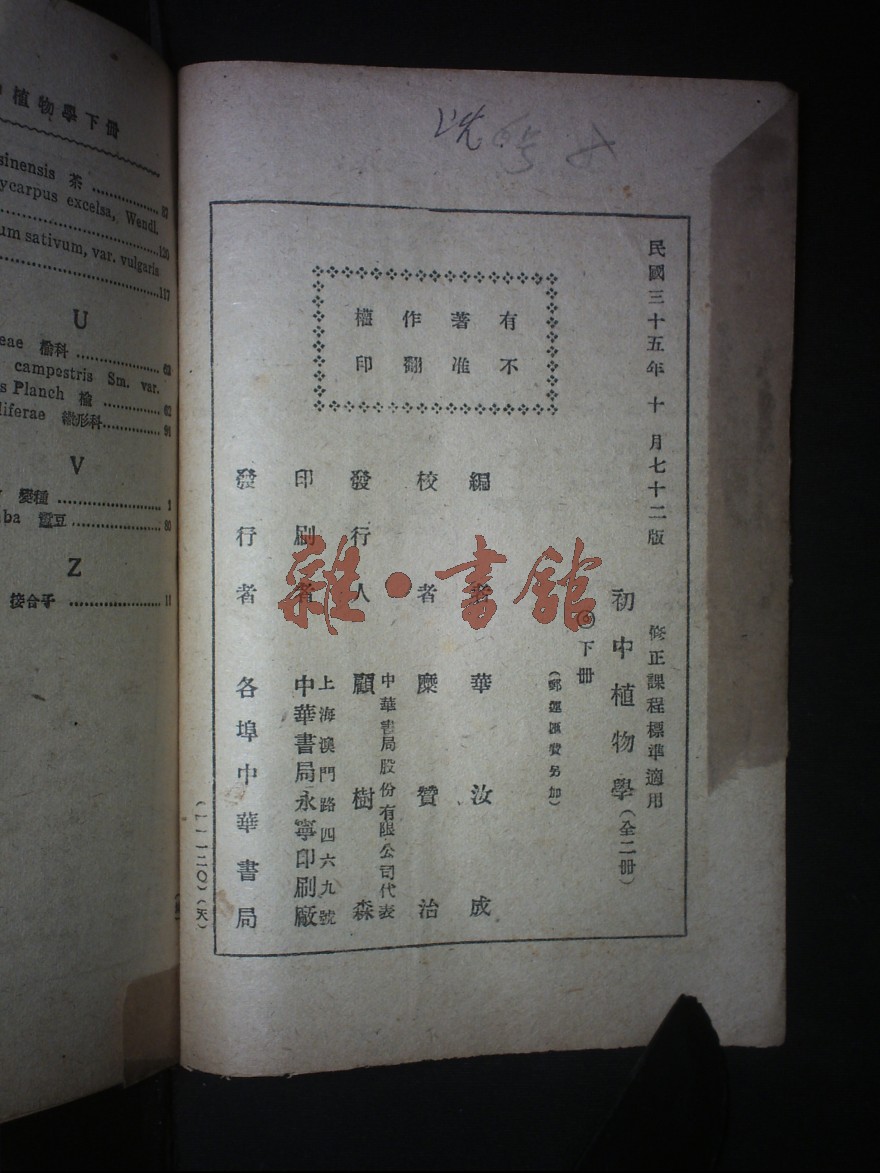 植物學下冊
sinensis 茶 ........ 83
ycarpus excelsa, Wendl.
........120
um sativum, var. vulgaris
........117
U
eae 榆科 ........ 62
campestris Sm. var.
s Planch 榆 ........ 62
liferae 繖形科........ 91
V
變種 ........ 3
ba 蠶豆 ........ 80
Z
接合子 ........ 11
民國三十五年十月七十二版
修正課程標準適用
初中植物學(全二冊)
下冊
(郵運匯費另加)
有著作權
不准翻印
編者 華汝成
校者 糜贊治
中華書局股份有限公司代表
發行人 顧樹森
上海澳門路四六九號
印刷者 中華書局永寧印刷廠
發行者 各埠中華書局
(一一一二〇)(天)
雜·書館